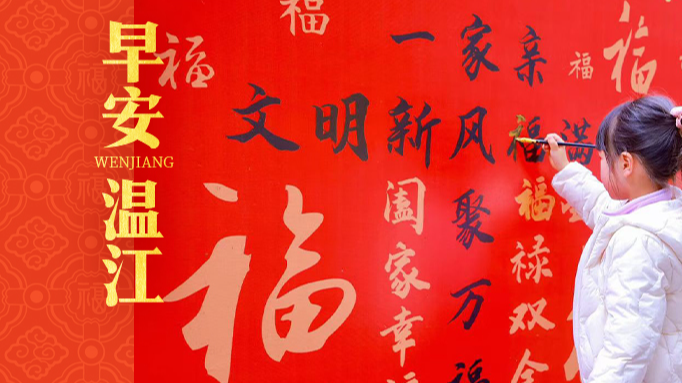 早安
WENJIANG
温江
福
福
一家亲
福
福
文明新风福满
福
阖家幸福
聚万福
福禄双全